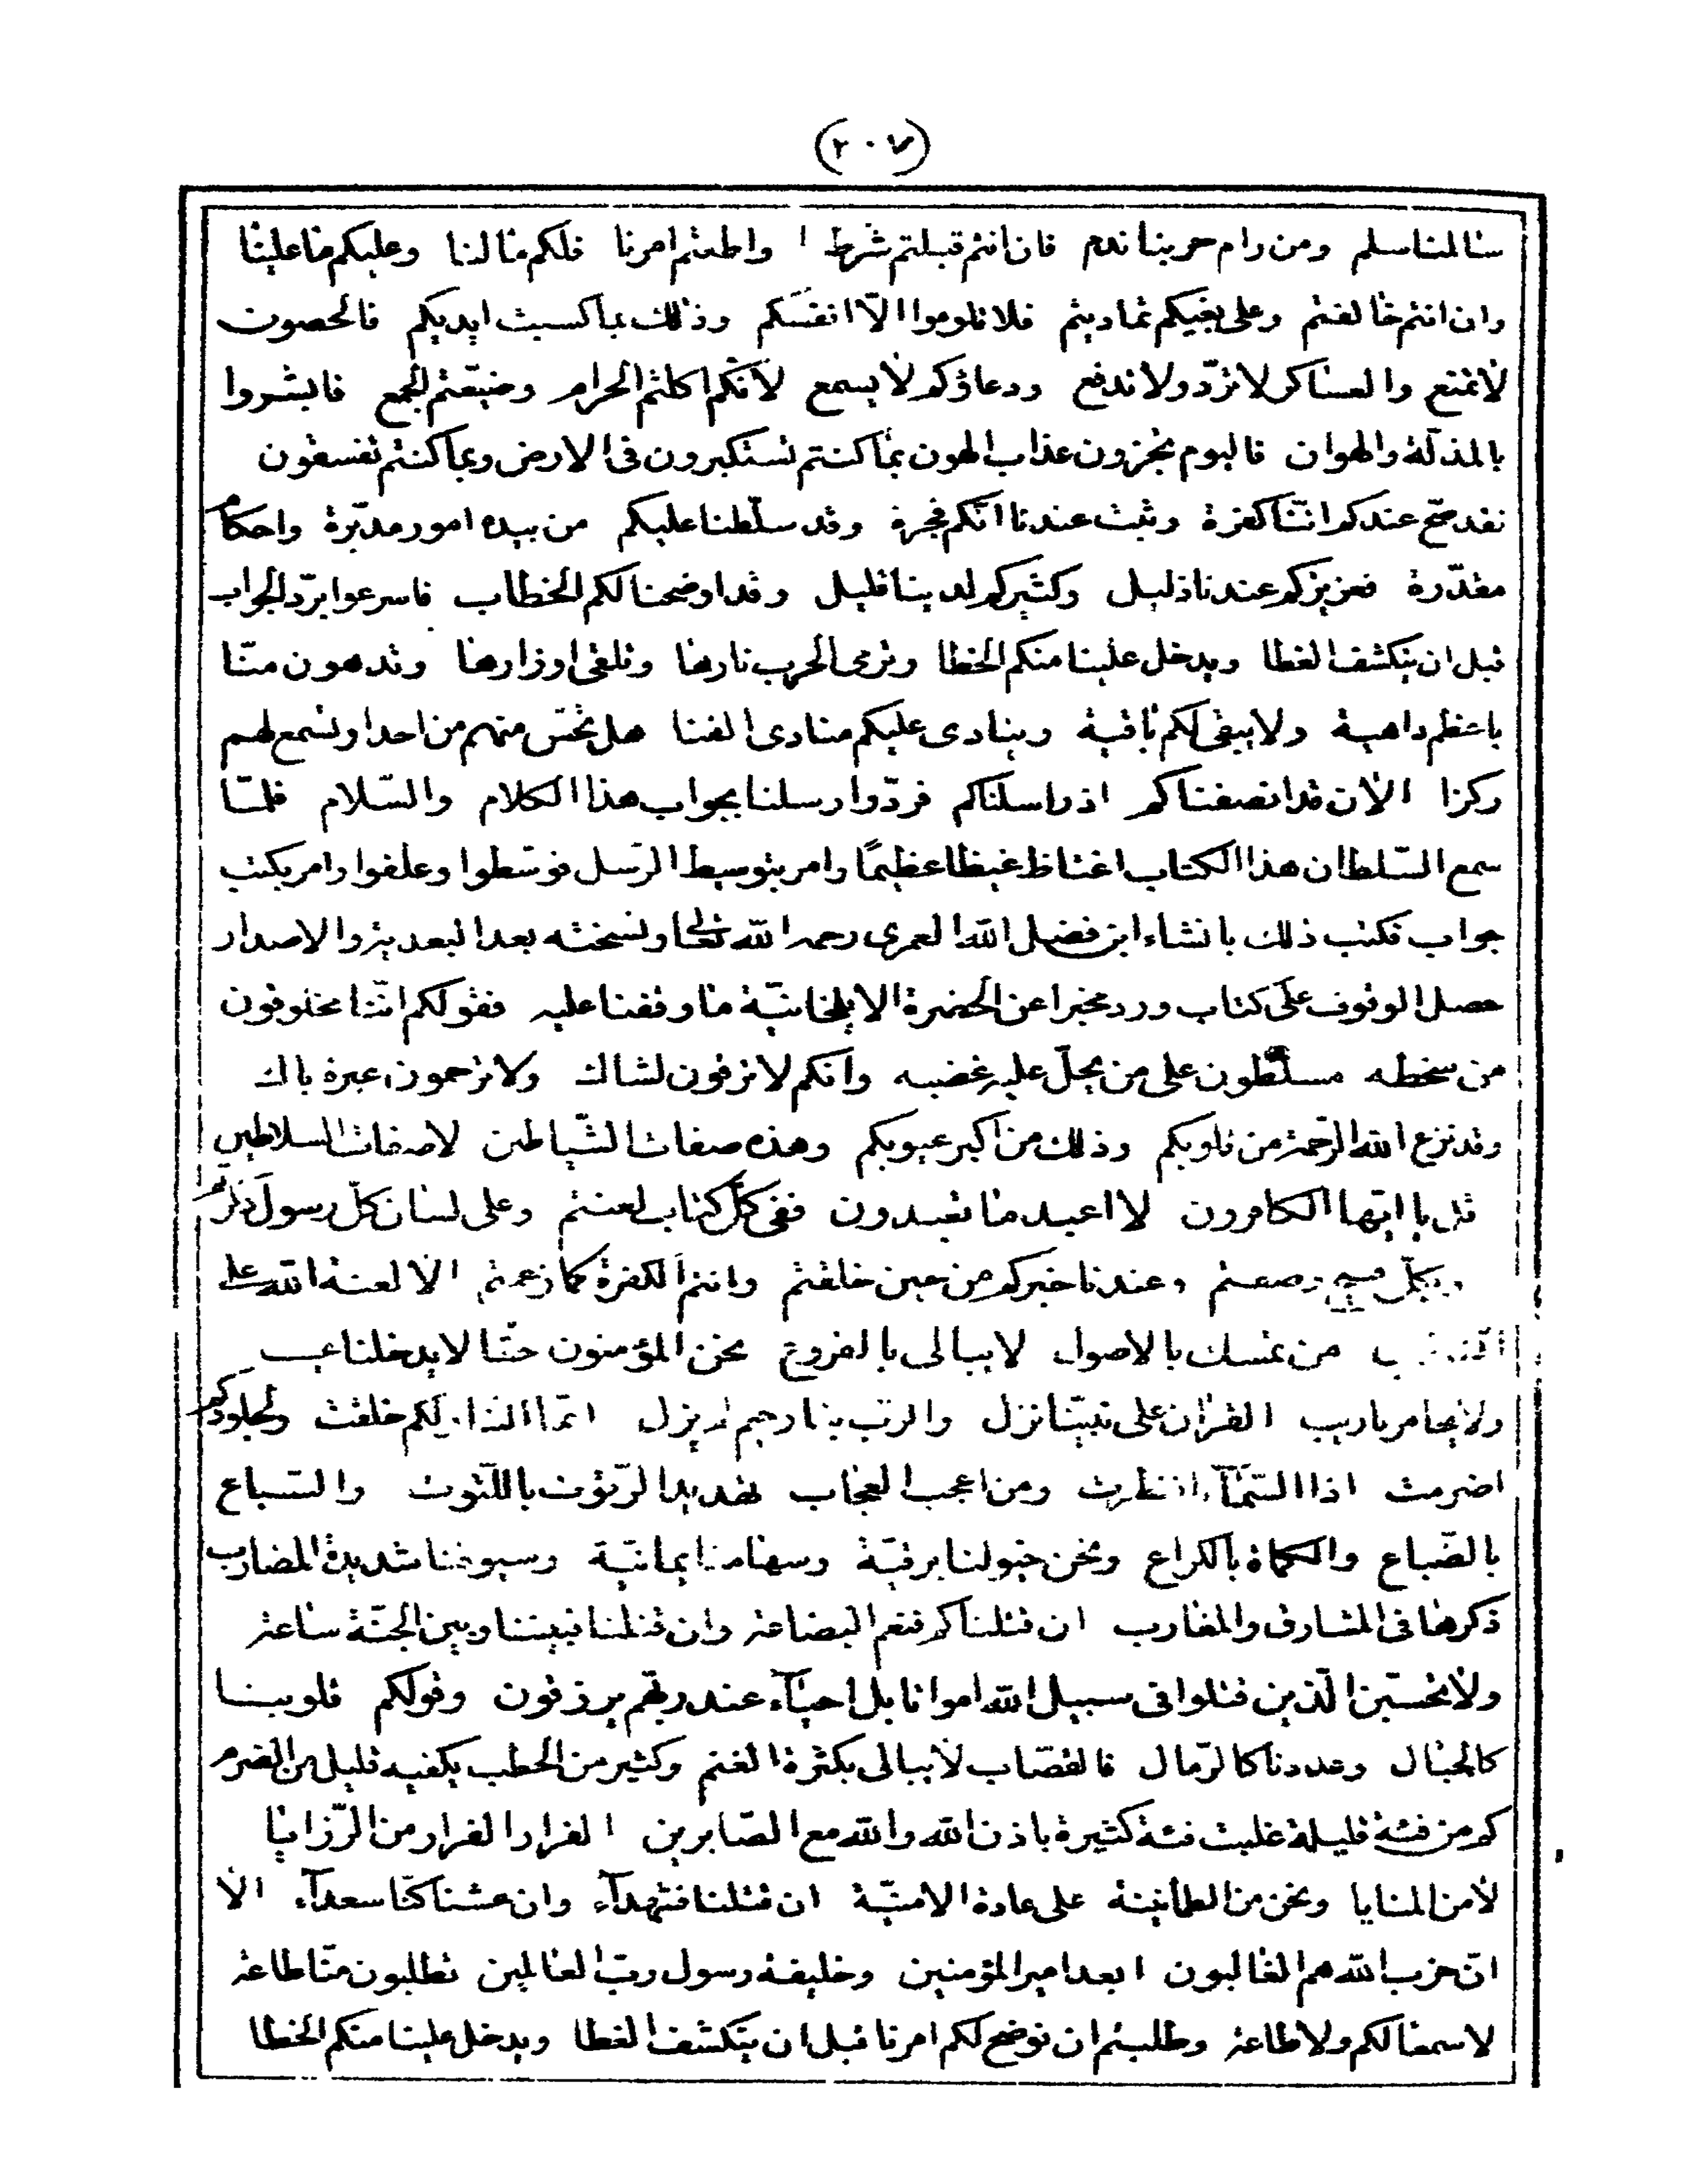 (٢٠٧)
سالمنا سلم ومن رام حربنا ندم فان انتم قبلتم شرطنا واطعتم امرنا فلكم ما لنا وعليكم ما علينا
وان انتم خالفتم وعلى بغيكم تماديتم فلا تلوموا الّا انفسكم وذلك بما كسبت ايديكم فالحصون
لا تمنع والعساكر لا تردّ ولا تدفع ودعاؤكم لا يسمع لانكم اكلتم الحرام وضيّعتم الجمع فابشروا
بالمذلّة والهوان فاليوم تجزون عذاب الهون بما كنتم تستكبرون فى الارض وبما كنتم تفسقون
فقد صحّ عندكم انّنا كفرة وثبت عندنا انّكم فجرة وقد سلّطنا عليكم من بيده امور مدبّرة واحكام
مقدّرة فعزيزكم عندنا ذليل وكثيركم لدينا قليل وقد اوضحنا لكم الخطاب فاسرعوا بردّ الجواب
قبل ان ينكشف الغطا ويدخل علينا منكم الخطا وترمى الحرب نارها وتلقى اوزارها وتدهون منّا
باعظم داهية ولا يبقى لكم باقية وينادى عليكم منادى الفنا هل تحسّ منهم من احد او تسمع لهم
ركزا الآن قد انصفناكم اذ راسلناكم فردّوا رسلنا بجواب هذا الكلام والسّلام فلمّا
سمع السّلطان هذا الكتاب اغتاظ غيظا عظيمًا وامر بتوسيط الرّسل فوسّطوا وعلقوا وامر بكتب
جواب فكتب ذلك بانشاء ابن فضل الله العمرى رحمه الله تعالى ونسخته بعد البعدية والاصدار
حصل الوقوف على كتاب ورد مخبرا عن الحضرة الايلخانيّة ما وقفنا عليه فقولكم انّنا مخلوقون
من سخطه مسلّطون على من يحلّ عليه غضبه وانكم لا ترقون لشاك ولا ترحمون عبرة باك
وقد نزع الله الرّحمة من قلوبكم وذلك من اكبر عيوبكم وهذه صفات الشّياطين لا صفات السلاطين
قل يا ايّها الكافرون لا اعبد ما تعبدون ففى كلّ كتاب لعنتم وعلى لسان كلّ رسول ذكرتم
وبكلّ قبيح وصفتم وعندنا خبركم من حين خلقتم وانتم الكفرة كما زعمتم الا لعنة الله على
من تمسك بالاصول لا يبالى بالفروع نحن المؤمنون حقّا لا يدخلنا عيب
ولا يخامرنا ريب القرآن على نبيّنا نزل والرّب بنا رحيم لم يزل انّما النار لكم خلقت ولجلودكم
اضرمت اذا السّمآء انفطرت ومن اعجب العجاب تهديد الرّتوت باللّتوت والسّباع
بالضّباع والكماة بالكراع ونحن خيولنا برقيّة وسهامنا يمانيّة وسيوفنا شديدة المضارب
ذكرها فى المشارق والمغارب ان قتلناكم فنعم البضاعة وان قتلنا فبيننا وبين الجنّة ساعة
ولا تحسبنّ الّذين قتلوا فى سبيل الله امواتا بل احيآء عند ربّهم يرزقون وقولكم قلوبنا
كالجبال وعددنا كالرّمال فالقصّاب لا يبالى بكثرة الغنم وكثير من الحطب يكفيه قليل من الضرم
كم من فئة قليلة غلبت فئة كثيرة باذن الله والله مع الصّابرين الفرار الفرار من الرّزايا
لا من المنايا ونحن من الطمأنينة على عادة الامنيّة ان قتلنا فشهدآء وان عشنا كنّا سعدآء الا
انّ حزب الله هم الغالبون ابعد امير المؤمنين وخليفة رسول ربّ العالمين تطلبون منّا طاعة
لا سمعا لكم ولا طاعة وطلبتم ان نوضح لكم امرنا قبل ان ينكشف الغطا ويدخل علينا منكم الخطا